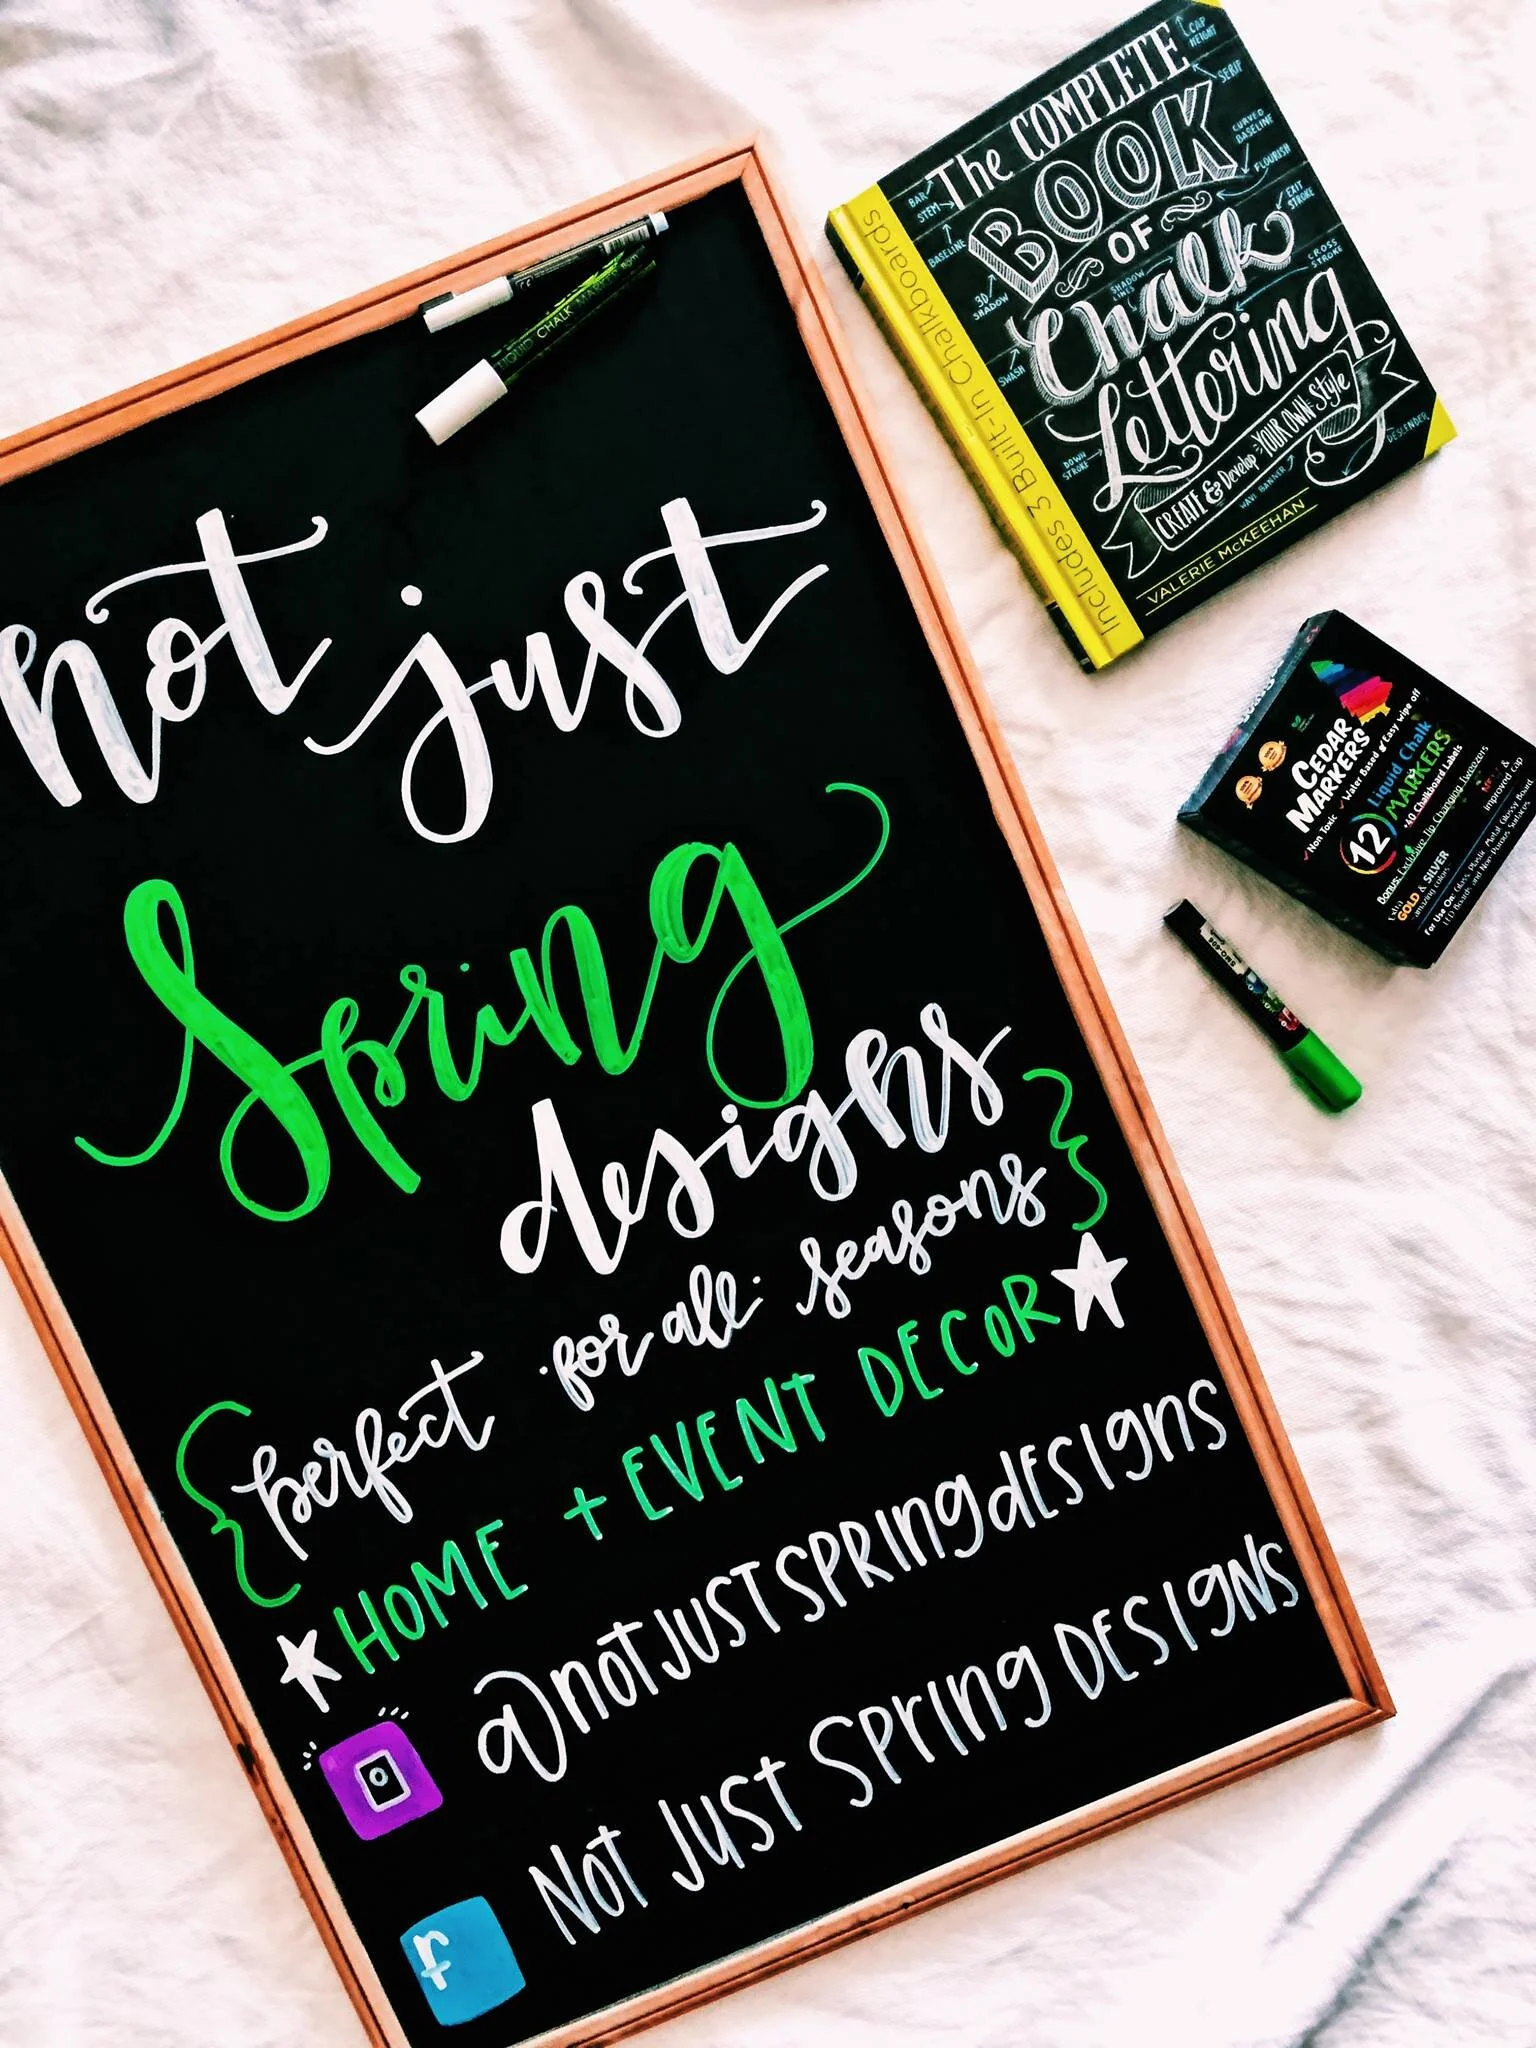 LIQUID CHALK MARKER
not just
Spring
designs
perfect for all seasons
HOME + EVENT DECOR
@notJUSTSPRINGdESIgns
NoT JUST SPrINg DESIgNS
f
The COMPLETE
BOOK
OF
Chalk
Lettering
CREATE & Develop YOUR OWN Style
VALERIE McKEEHAN
Includes 3 Built-In Chalkboards
CAP HEIGHT
SERIF
CURVED BASELINE
FLOURISH
EXIT STROKE
CROSS STROKE
BAR
STEM
BASELINE
3D SHADOW
SHADOW LINES
SWASH
DOWN STROKE
WAVY BANNER
DESCENDER
CEDAR
MARKERS
Non Toxic
Water Based
Easy wipe off
12
Liquid Chalk
MARKERS
40 Chalkboard Labels
Bonus: Exclusive Tip Changing Tweezers
Extra
GOLD & SILVER
amazing colors
improved Cap
For Use On: Glass Plastic Metal Glossy Board
LED Boards and Non-Porous Surfaces